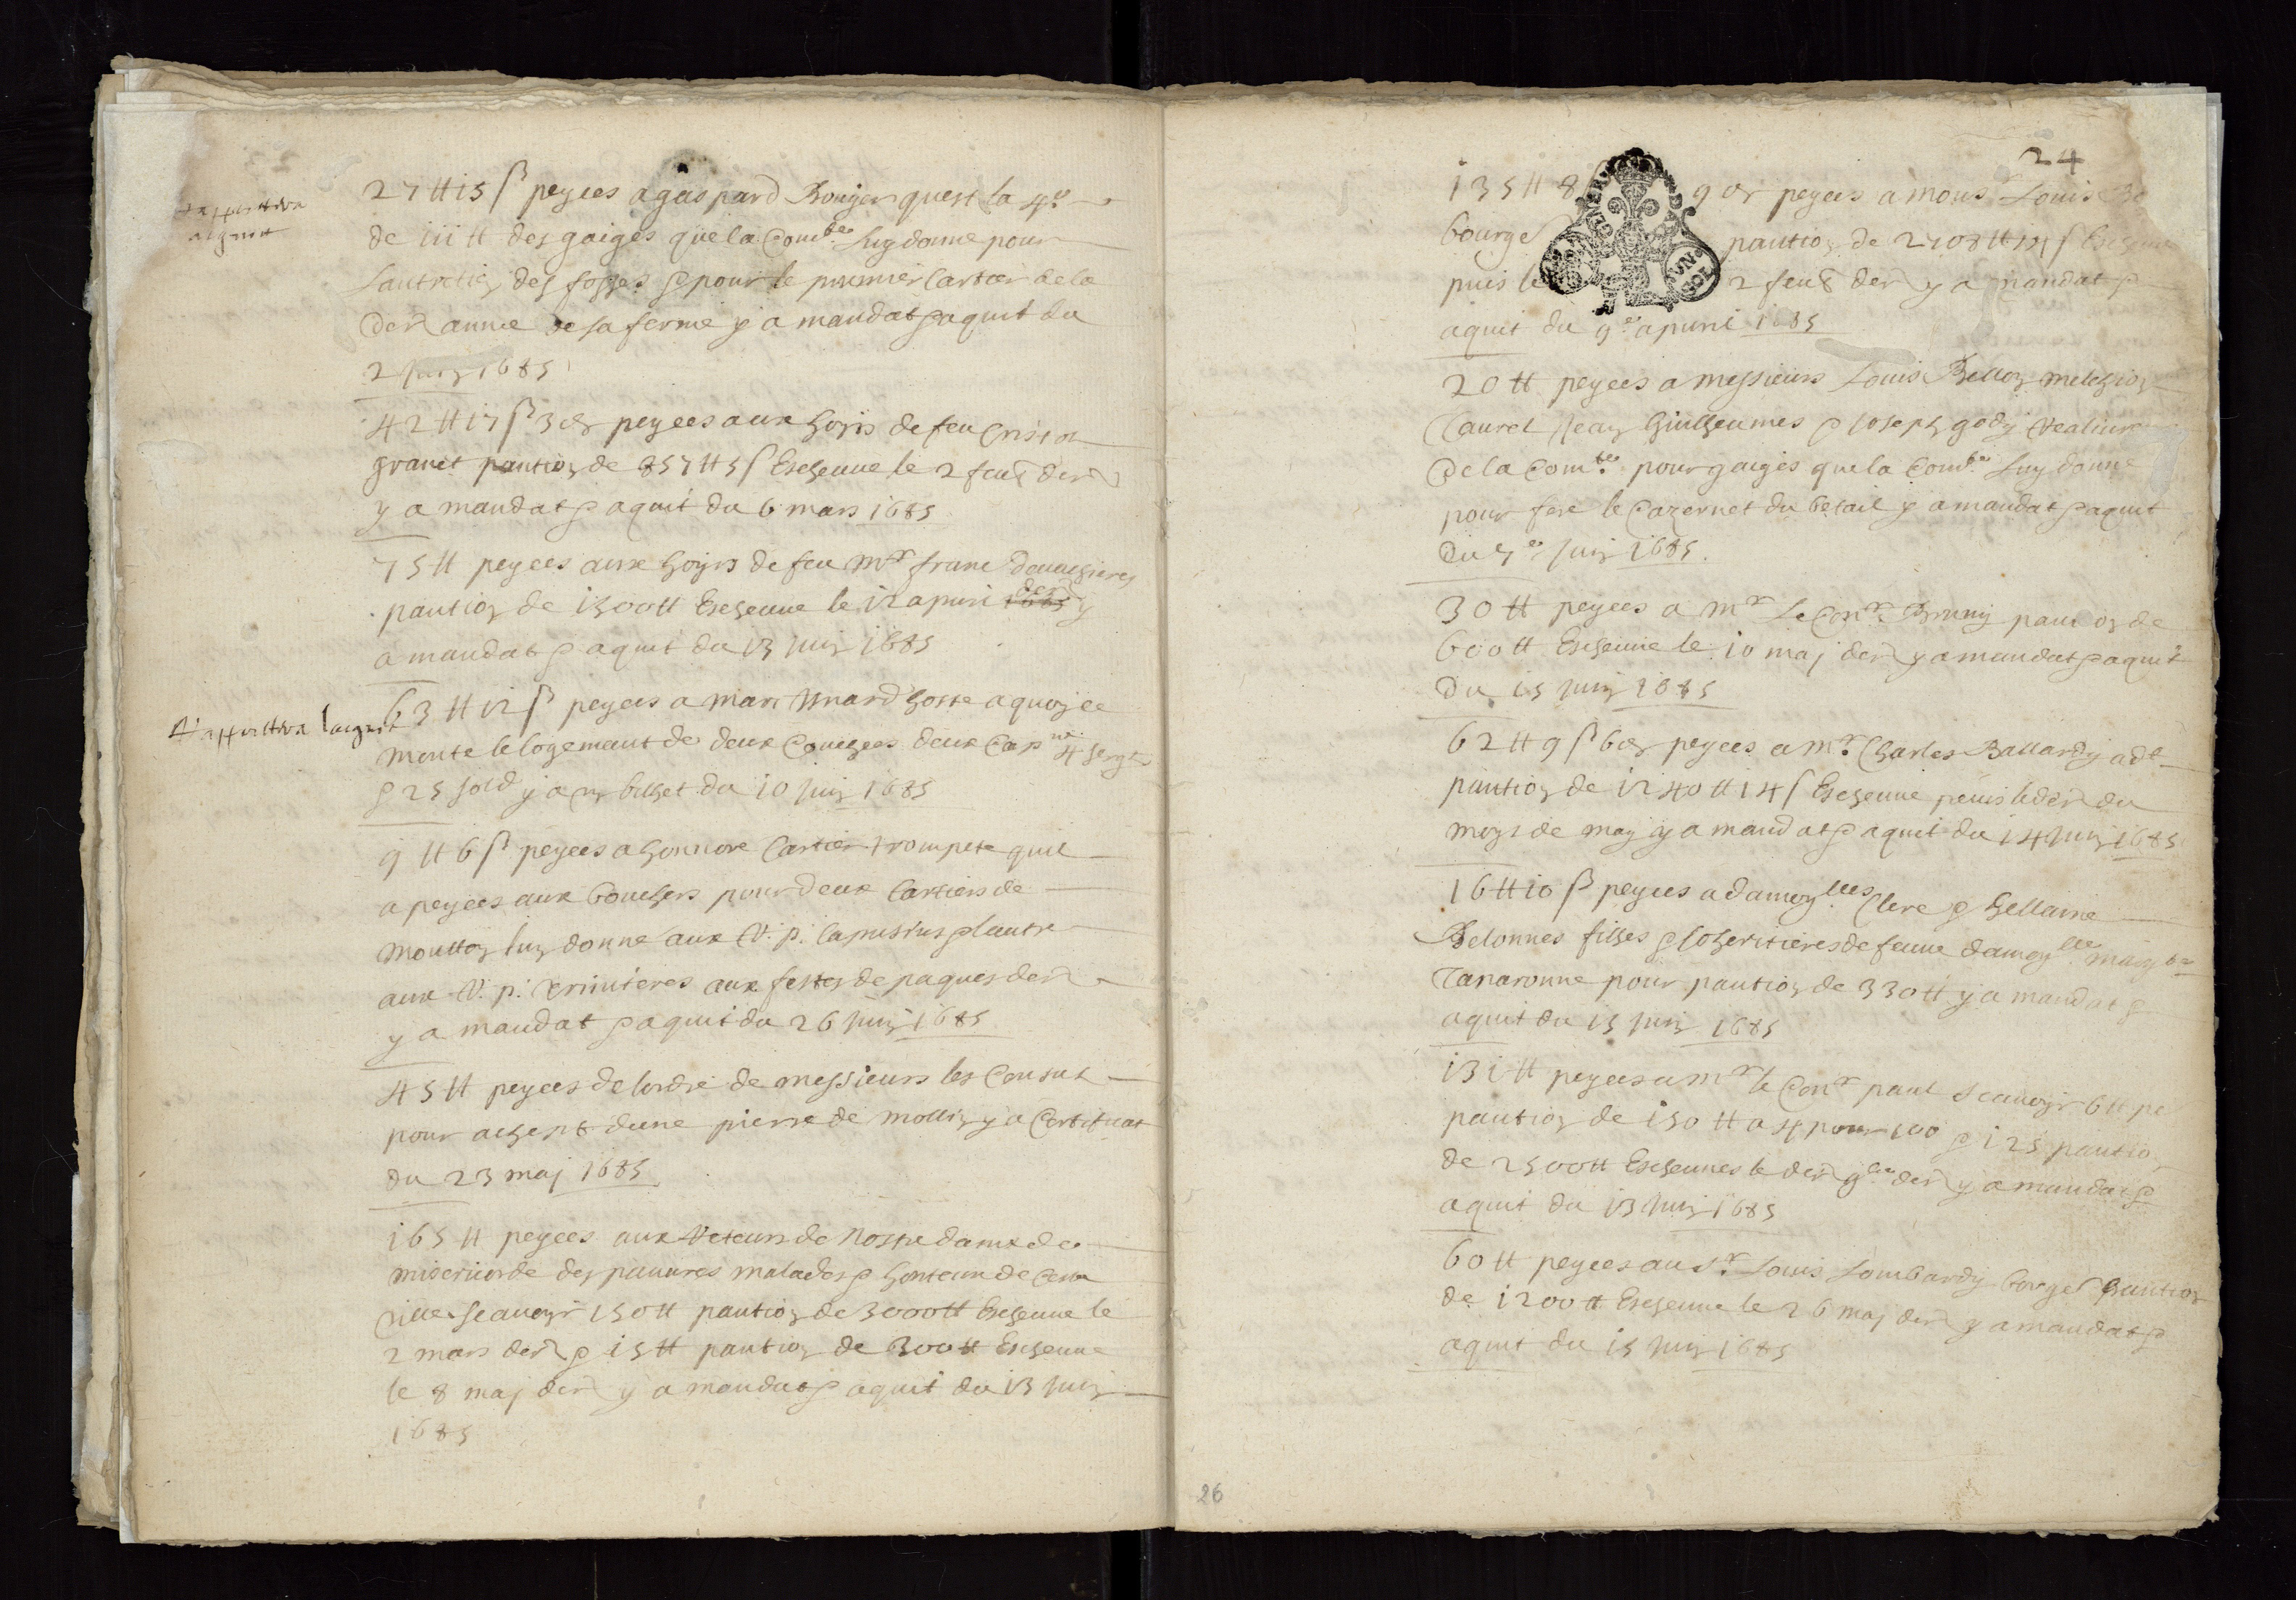 27 ₶ 15 ſ peyees a gaspard Rouger quest la 4e
de 111 ₶ des gaiges que la Comte luy donne pour
Lantretien des fosses & pour le premier Cartier de la
Der annee de sa ferme y a mandat & aquit du
2 Juin 1685
42 ₶ 17 ſ 3 d peyees aux hoirs de feu
granet pantion de 857 ₶ 5 ſ Escheuue le 2 feur der
y a mandat & aquit du 6 mars 1685
75 ₶ peyees aux hoyrs de feu Mr franc
pantion de 1500 ₶ Escheuue le 12 apuri der y
a mandat & aquit du 13 Juin 1685
raportera laquit
63 ₶ 12 ſ peyees a Marc hoste a quoy ce
monte le logemant de deux Couchees deux Cap ne 4 sergts
& 25 sold y a un bilhet du 10 Juin 1685
9 ₶ 6 ſ peyees a honnore Cartier trompete quil
a peyees aux bouchers pour deux Cartiers de
moutton luy donne aux R. p. Capusins & lautre
aux R. p. aux festes de paques der
y a mandat & aquit du 26 Juin 1685
45 ₶ peyees de lordre de messieurs les Consuls
pour achept dune pierre de mollin y a Certificat
du 23 maj 1685
165 ₶ peyees aux Reteurs de Nostre dame de
misericorde des pauures malades & honteux de Ceste
ville scauoyr 150 ₶ pantion de 3000 ₶ Escheuue le
2 mars der & 15 ₶ pantion de 300 ₶ Escheuue
le 8 maj der y a mandat & aquit du 13 Juin
1685
24
135 ₶ 8 9 d peyees a Mousr Louis
bourge pantion de 2708 ₶
puis le 2 feur der y a mandat &
aquit du 9e apuril 1685
VN SOL
20 ₶ peyees a messieurs Louis Bellon melchion
Laurel Jean Guilheumes & Joseph gody
De la Comte pour gaiges que la Comte luy donne
pour fere le Cazernet du betail y a mandat & aquit
Du 7e Juin 1685
30 ₶ peyees a Mr Le Conr Bruny pantion de
600 ₶ Escheuue le 10 maj der y a mandat & aquit
Du 15 Juin 1685
62 ₶ 9 ſ 6 d peyees a Mr Charles Ballardy adt
pantion de 1240 ₶ 14 ſ Escheuue peuis le der du
moys de may y a mandat & aquit du 14 Juin 1685
16 ₶ 10 ſ peyees a damoylles Clere & hellaine
Belonnes filhes & coheritieres de feuue damoylle
Tanaronne pour pantion de 330 ₶ y a mandat &
aquit du 15 Juin 1685
131 ₶ peyees a Mr le Conr paul scauoyr 6 ₶ pr
pantion de 150 ₶ a 4 pour 100 & 125 pantion
de 2500 ₶ Escheuues le der 9bre der y a mandat &
aquit du 13 Juin 1685
60 ₶ peyees au Sr Louis Lombardy bourges pantion
de 1200 ₶ Escheuue le 26 maj der y a mandat &
aquit du 15 Juin 1685
26